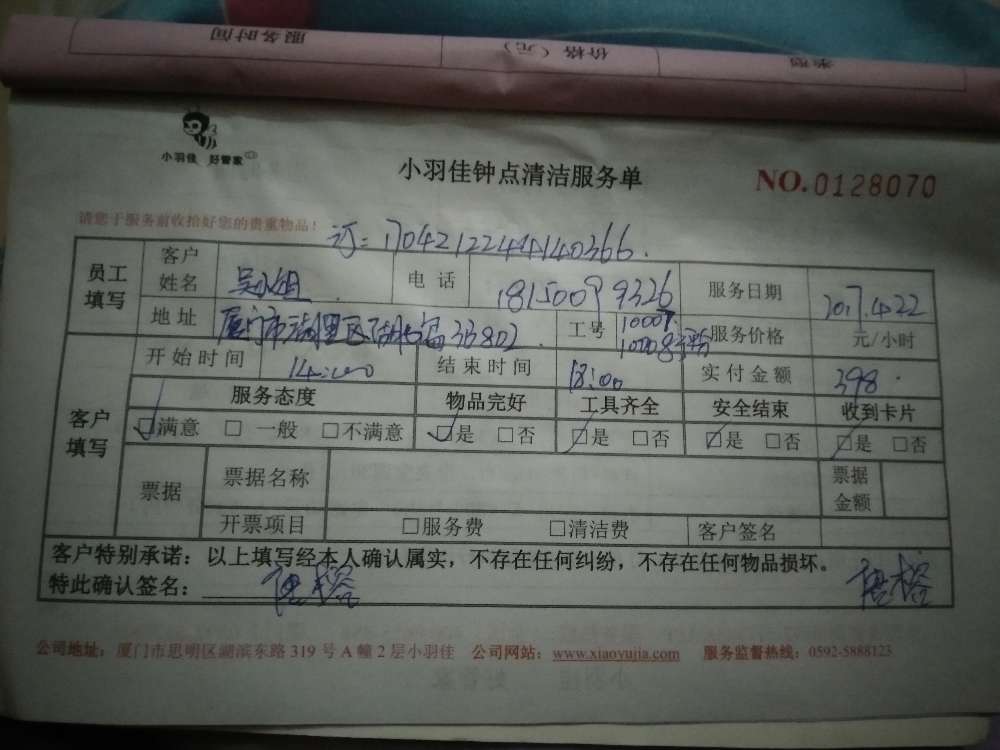 服务时间 价格(元) 类型
小羽佳 好管家
小羽佳钟点清洁服务单 NO.0128070
请您于服务前收拾好您的贵重物品!
订: 170421224414140366.
员工填写 客户姓名 电话 18150099326 服务日期 2017.4.22
地址 厦门市湖里区 33802 工号 10007 10008 服务价格 元/小时
客户填写 开始时间 14:00 结束时间 18:00 实付金额 398.
服务态度 物品完好 工具齐全 安全结束 收到卡片
☑满意 □一般 □不满意 ☑是 □否 ☑是 □否 ☑是 □否 ☑是 □否
票据 票据名称 票据金额
开票项目 □服务费 □清洁费 客户签名
客户特别承诺:以上填写经本人确认属实,不存在任何纠纷,不存在任何物品损坏。
特此确认签名:
公司地址:厦门市思明区湖滨东路319号A幢2层小羽佳 公司网站:www.xiaoyujia.com 服务监督热线:0592-5888123